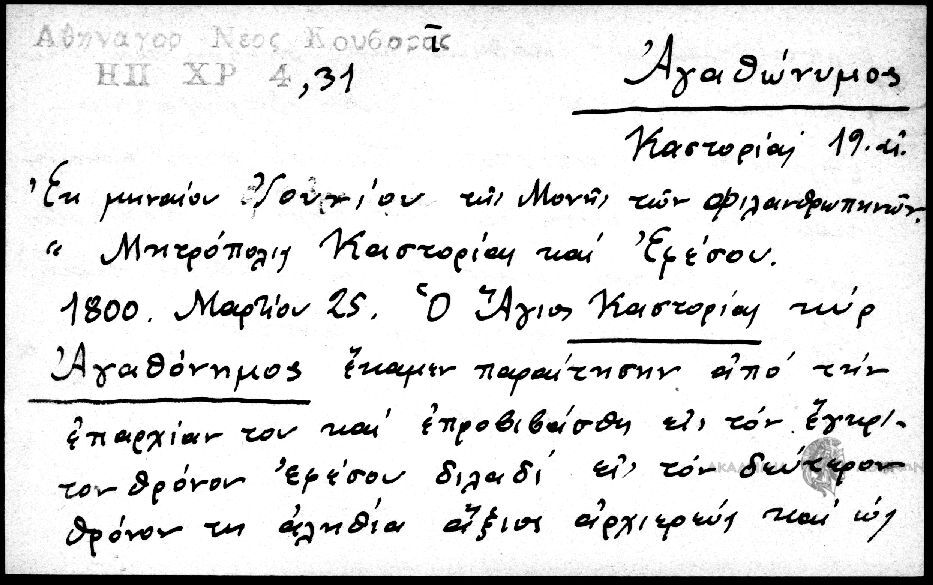 Αθηναγορ Νεος Κουβαρᾶς
ΗΠ ΧΡ 4, 31
Ἀγαθώνυμος
Καστορίας 19. αἰ.
Ἐκ μηναίου Ἰουνίου τῆς Μονῆς τῶν Φιλανθρωπηνῶν.
“ Μητρόπολις Καστορίας καὶ Ἐφέσου.
1800. Μαρτίου 25. Ὁ Ἅγιος Καστορίας κύρ
Ἀγαθόνημος ἔκαμεν παραίτησην ἀπό τήν
ἐπαρχίαν του καί ἐπροβιβάσθη εἰς τόν ἔγκρι-
τον θρόνον Ἐφέσου διλαδί εἰς τόν δεύτερον
θρόνον τη ἀληθία ἄξιος ἀρχιερεύς καί ὡς